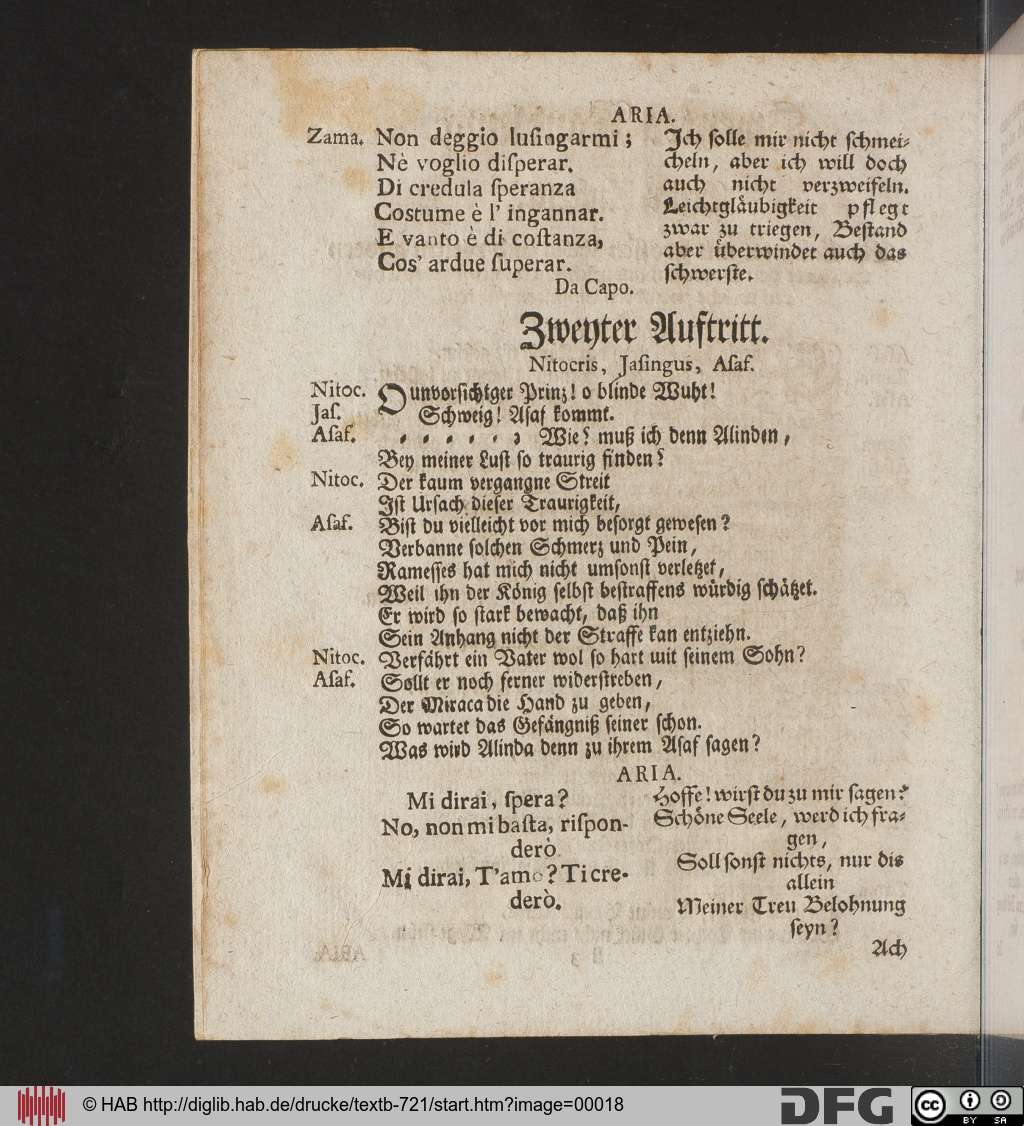 ARIA.
Zama. Non deggio luſingarmi;
Nè voglio diſperar.
Di credula ſperanza
Costume è l' ingannar.
E vanto è di coſtanza,
Cos' ardue ſuperar.
Da Capo.
Ich ſolle mir nicht ſchmei⸗
cheln, aber ich will doch
auch nicht verzweifeln.
Leichtgläubigkeit pflegt
zwar zu triegen, Beſtand
aber überwindet auch das
ſchwerſte.
Zweyter Auftritt.
Nitocris, Jaſingus, Aſaf.
Nitoc. O unvorſichtger Prinz! o blinde Wuht!
Jaſ. Schweig! Aſaf kommt.
Aſaf. ⸗ ⸗ ⸗ ⸗ ⸗ ⸗ Wie? muß ich denn Alinden,
Bey meiner Luſt ſo traurig finden?
Nitoc. Der kaum vergangne Streit
Iſt Urſach dieſer Traurigkeit,
Aſaf. Biſt du vielleicht vor mich beſorgt geweſen?
Verbanne ſolchen Schmerz und Pein,
Rameſſes hat mich nicht umſonſt verletzet,
Weil ihn der König ſelbſt beſtraffens würdig ſchätzet.
Er wird ſo ſtark bewacht, daß ihn
Sein Anhang nicht der Straffe kan entziehn.
Nitoc. Verfährt ein Vater wol ſo hart mit ſeinem Sohn?
Aſaf. Sollt er noch ferner widerſtreben,
Der Miraca die Hand zu geben,
So wartet das Gefängniß ſeiner ſchon.
Was wird Alinda denn zu ihrem Aſaf ſagen?
ARIA.
Mi dirai, ſpera?
No, non mi baſta, riſpon-
derò
Mi dirai, T'amo? Ti cre-
derò.
Hoffe! wirſt du zu mir ſagen?
Schöne Seele, werd ich fra⸗
gen,
Soll ſonſt nichts, nur dis
allein
Meiner Treu Belohnung
ſeyn?
Ach
© HAB http://diglib.hab.de/drucke/textb-721/start.htm?image=00018
DFG
cc BY SA